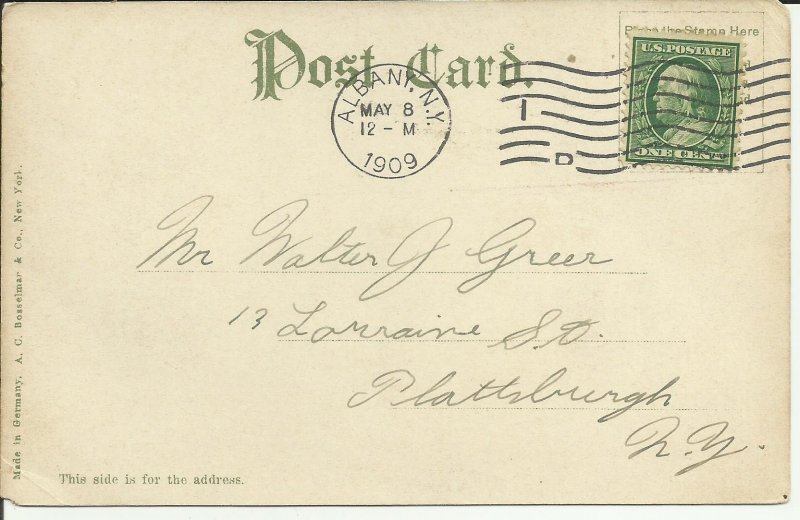 Post Card.
Place the Stamp Here
U.S. POSTAGE
ONE CENT
ALBANY, N.Y.
MAY 8
12 - M
1909
1
D
Mr Walter J Greer
13 Lorraine St.
Plattsburgh
N.Y.
Made in Germany. A. C. Bosselman & Co., New York.
This side is for the address.